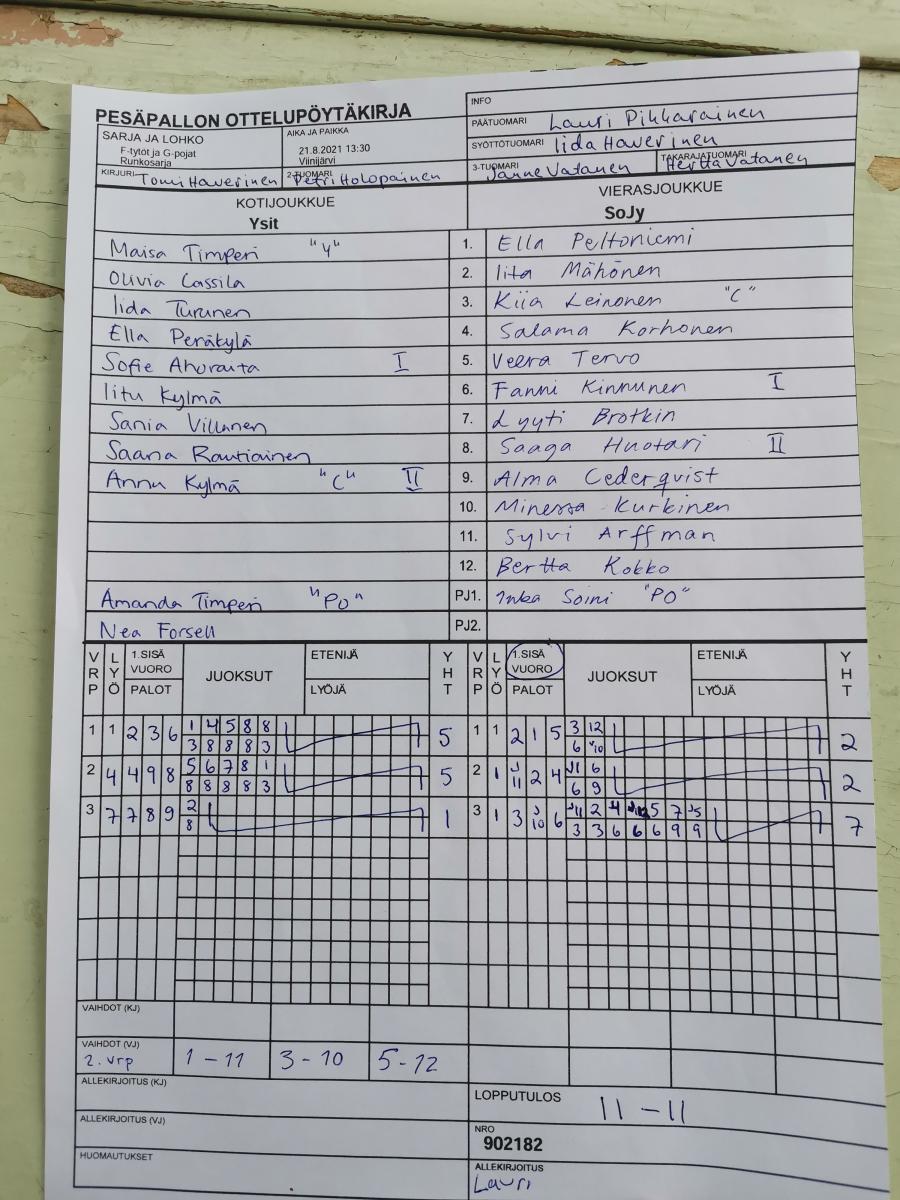 PESÄPALLON OTTELUPÖYTÄKIRJA
INFO
PÄÄTUOMARI Lauri Pikkarainen
SYÖTTÖTUOMARI Iida Haverinen
SARJA JA LOHKO
F-tytöt ja G-pojat
Runkosarja
AIKA JA PAIKKA
21.8.2021 13:30
Viinijärvi
KIRJURI Tomi Haverinen
2-TUOMARI Petri Holopainen
3-TUOMARI Janne Vatanen
TAKARAJATUOMARI Hertta Vatanen
KOTIJOUKKUE VIERASJOUKKUE
Ysit SoJy
Maisa Timperi "4" 1. Ella Peltoniemi
Olivia Cassila 2. Iita Mähönen
Iida Turunen 3. Kiia Leinonen "C"
Ella Peräkylä 4. Salama Korhonen
Sofie Ahorauta I 5. Veera Tervo
Iitu Kylmä 6. Fanni Kinnunen I
Sania Villanen 7. Lyyti Brotkin
Saana Rautiainen 8. Saaga Huotari II
Annu Kylmä "C" II 9. Alma Cederqvist
10. Minessa Kurkinen
11. Sylvi Arffman
12. Bertta Kokko
Amanda Timperi "PO" PJ1. Inka Soini "PO"
Nea Forsell PJ2.
VRP LYÖ 1.SISÄ VUORO PALOT JUOKSUT ETENIJÄ LYÖJÄ YHT VRP LYÖ 1.SISÄ VUORO PALOT JUOKSUT ETENIJÄ LYÖJÄ YHT
1 1 2 3 6 1 4 5 8 8 5 1 1 2 1 5 3 12 2
3 8 8 8 3 6 V10
2 4 4 9 8 5 6 7 8 1 5 2 1 J11 2 4 J11 6 2
8 8 8 8 3 6 9
3 7 7 8 9 2 1 3 1 3 J10 6 J11 2 4 5 7 J5 7
8 3 3 6 6 6 9 9
VAIHDOT (KJ)
VAIHDOT (VJ)
2. vrp 1-11 3-10 5-12
ALLEKIRJOITUS (KJ)
LOPPUTULOS 11-11
ALLEKIRJOITUS (VJ)
NRO
902182
HUOMAUTUKSET
ALLEKIRJOITUS
Lauri